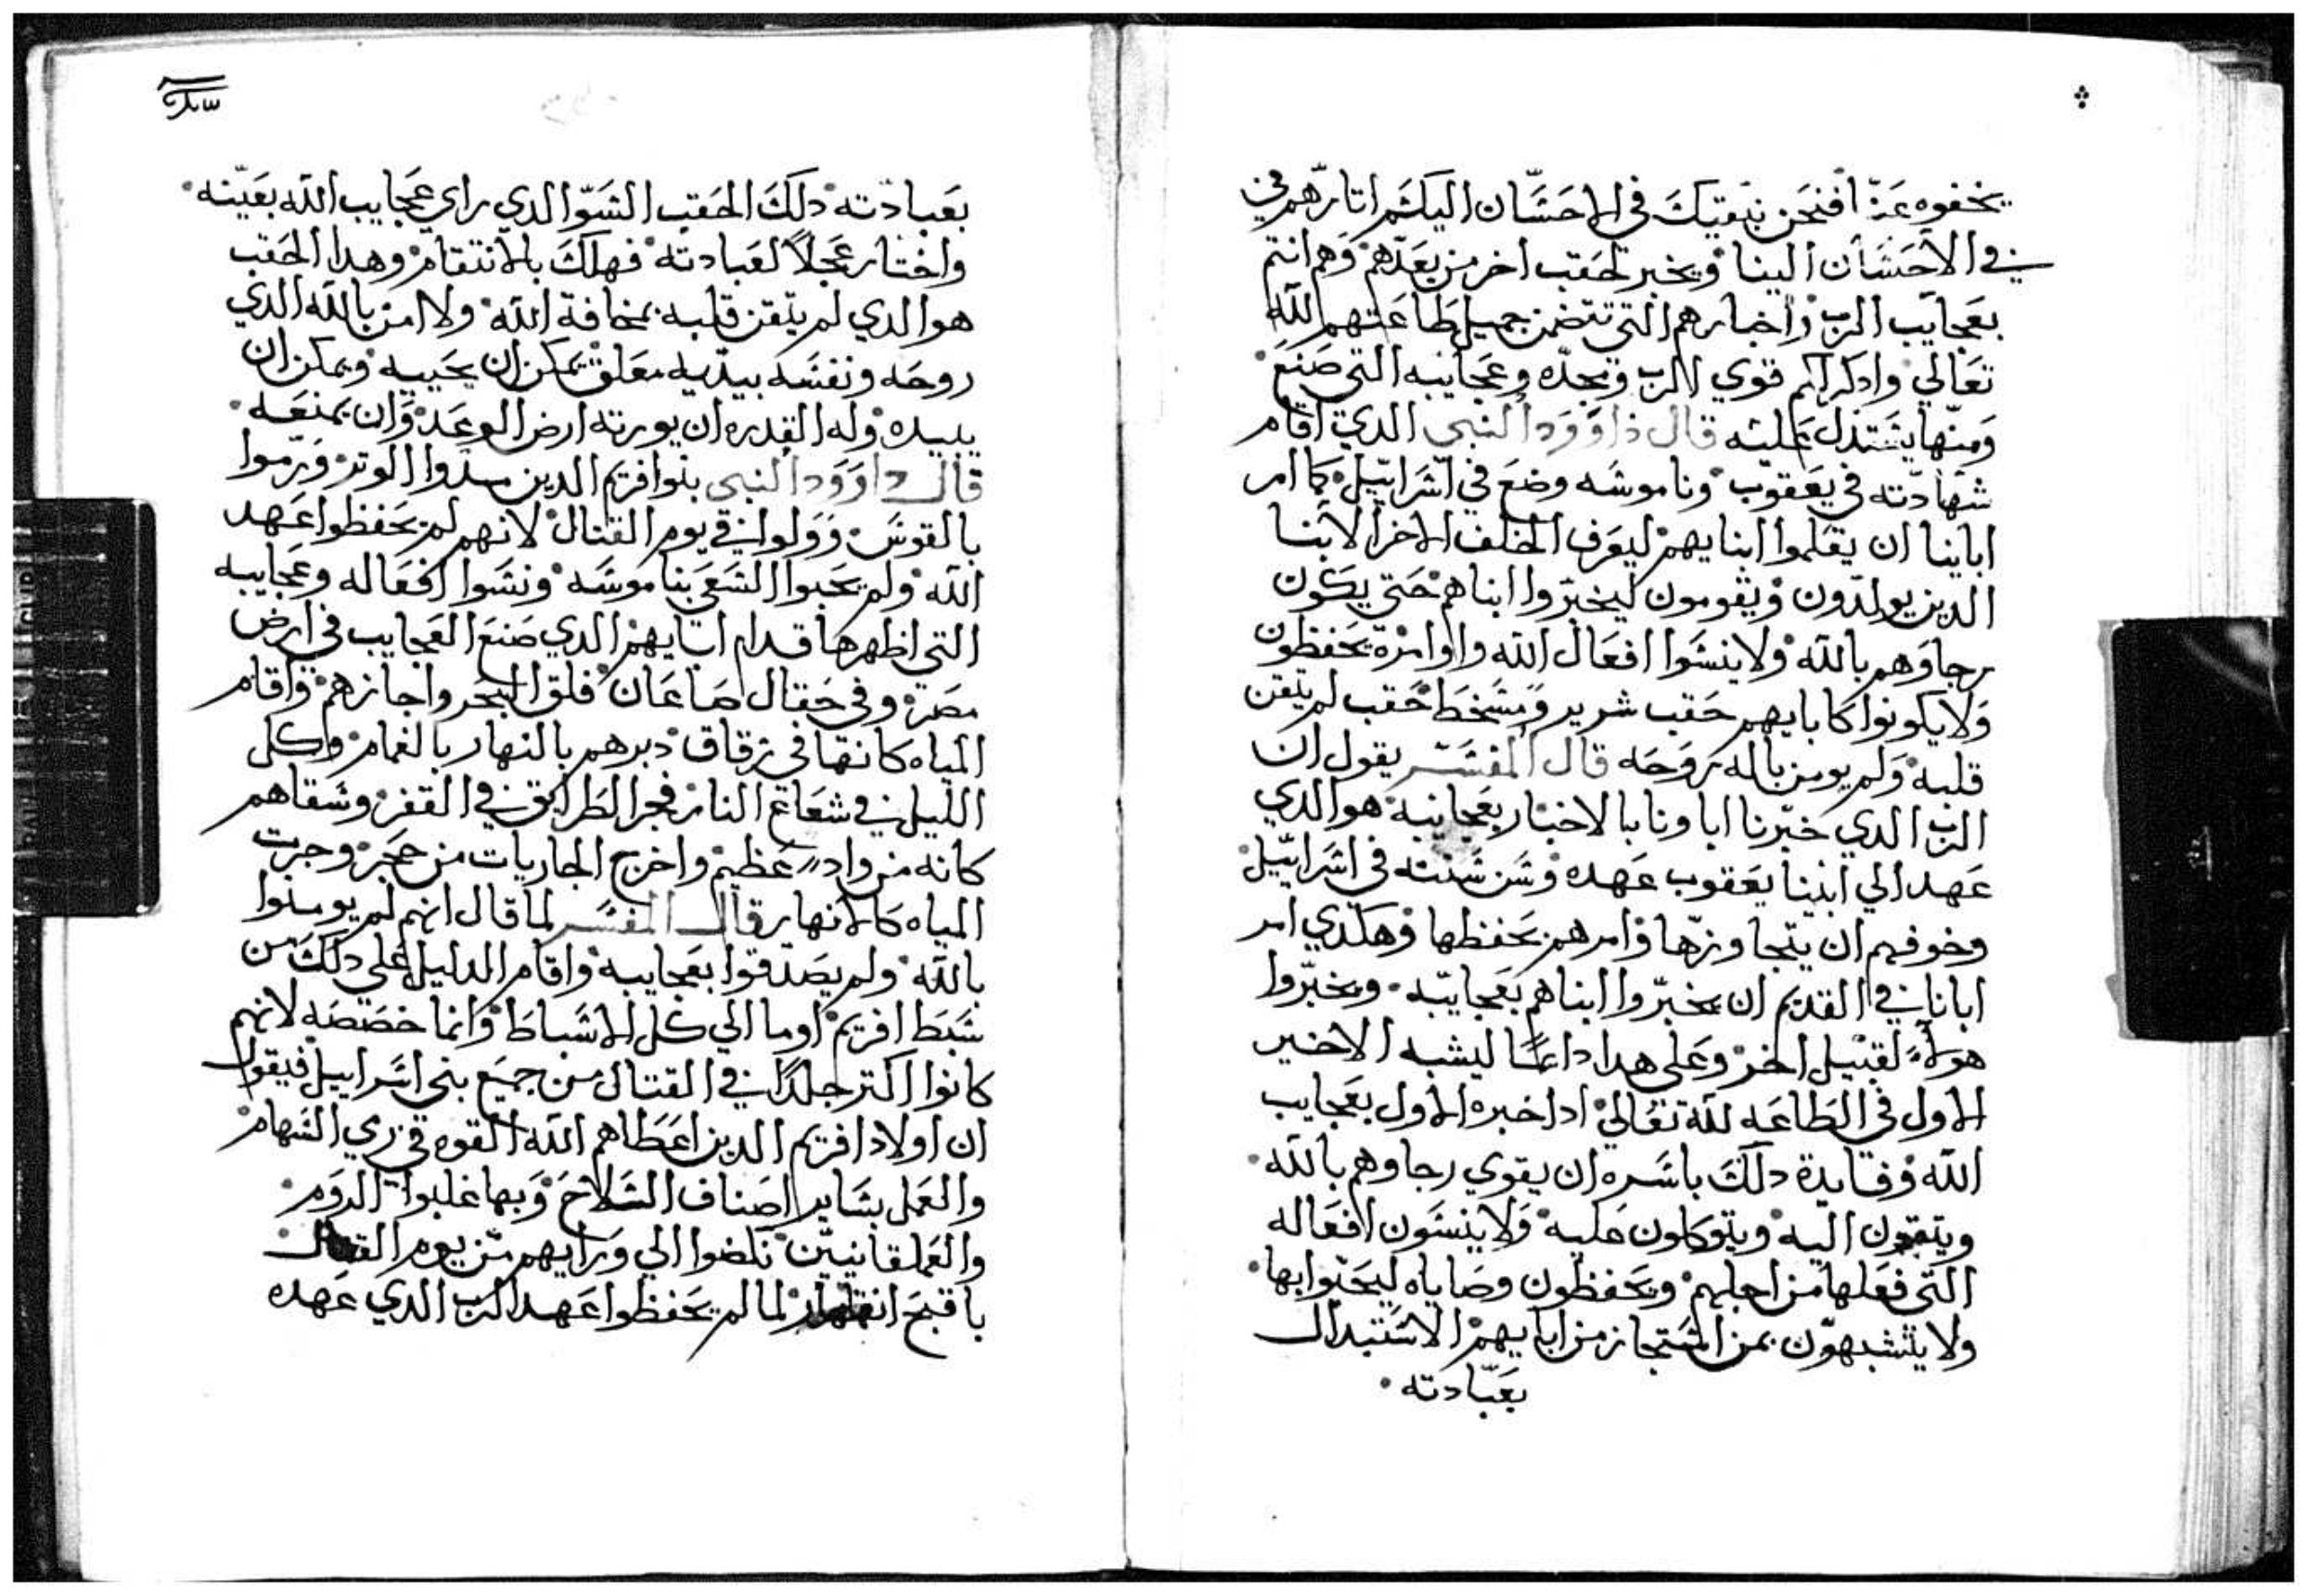 يخفوه عنا فنحن نبقيك في الاحسان اليكم اتارهم في
في الاحسان الينا ويخبر لحقب اخر من بعدهم وهم انتم
بعجايب الرب واخبارهم التي تتضمن جميل طاعتهم لله
تعالي وادكر لكم قوي الرب ومجده وعجايبه التي صنع
ومنها يستدل عليه قال داوود النبي الدي اقام
شهادته في يعقوب وناموسه وضع في اسراييل كما امر
اباينا ان يعلموا ابنايهم ليعرف الخلف الاخر الابنا
الدين يولدون ويقومون ليخبروا ابناهم حتي يكون
رجاوهم بالله ولا ينسوا افعال الله واوامره يحفظون
ولا يكونوا كابايهم حقب شرير ومسخط حقب لم يتقن
قلبه ولم يومن باله روحه قال المفسر يقول ان
الرب الدي خبرنا اباونا بالاخبار بعجايبه هو الدي
عهد الي ابينا يعقوب عهده وسن سنته في اسراييل
وخوفهم ان يتجاوزها وامرهم بحفظها وهكدي امر
ابانا في القديم ان يخبروا ابناهم بعجايبه ويخبروا
هولاء لقبيل اخر وعلي هدا دايما ليشبه الاخير
الاول في الطاعه لله تعالي ادا خبره الاول بعجايب
الله وفايدة دلك باسره ان يقوي رجاوهم بالله
ويتقون اليه ويتوكلون عليه ولا ينسون افعاله
التي فعلها من اجلهم ويحفظون وصاياه ليحيوا بها
ولا يتشبهون بمن استجاز من ابايهم الاستبدال
بعبادته
بعبادته دلك الحقب السوا الدي راي عجايب الله بعينه
واختار عجلا لعبادته فهلك بالانتقام وهدا الحقب
هو الدي لم يتقن قلبه بمخافة الله ولا امن بالله الدي
روحه ونفسه بيديه معلق يمكن ان يحييه ويمكن ان
يبيده وله القدره ان يورته ارض الوعد وان يمنعه
قال داوود النبي بنوا افريم الدين سدوا الوتر ورموا
بالقوس وولوا في يوم القتال لانهم لم يحفظوا عهد
الله ولم يحبوا السعي بناموسه ونسوا افعاله وعجايبه
التي اظهرها قدام ابايهم الدي صنع العجايب في ارض
مصر وفي حقال صاعان فلق البحر واجازهم واقام
المياه كانها في زقاق دبرهم بالنهار بالغمام وكل
الليل في شعاع النار فجر الطرايق في القفر وسقاهم
كانه من واد عظيم واخرج الجاريات من حجر وجرت
المياه كالانهار قال المفسر لما قال انهم لم يومنوا
بالله ولم يصدقوا بعجايبه واقام الدليل علي دلك من
سبط افريم اوما الي كل الاسباط وانما خصصه لانهم
كانوا اكتر جلدا في القتال من جميع بني اسراييل فيقول
ان اولاد افريم الدين اعطاهم الله القوه في رمي السهام
والعمل بساير اصناف السلاح وبها غلبوا الروم
والعملقانيين نكصوا الي ورايهم من يوم القتال
باقبح لما لم يحفظوا عهد الرب الدي عهده